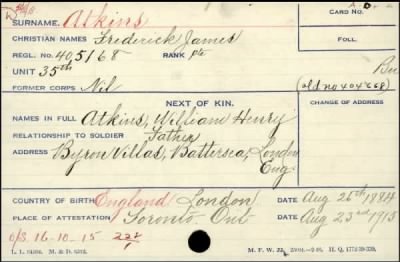 SURNAME. Atkins CARD NO.
CHRISTIAN NAMES Frederick James FOLL.
REGL. NO. 405168 RANK pte
UNIT 35th
FORMER CORPS Nil (old no 404668)
NEXT OF KIN. CHANGE OF ADDRESS
NAMES IN FULL Atkins, William Henry
RELATIONSHIP TO SOLDIER Father
ADDRESS Byron Villas, Battersea, London
Eng
COUNTRY OF BIRTH England London DATE Aug 26th 1884
PLACE OF ATTESTATION Toronto Ont DATE Aug 23rd 1915
O/S. 16-10-15
M. F. W. 22.